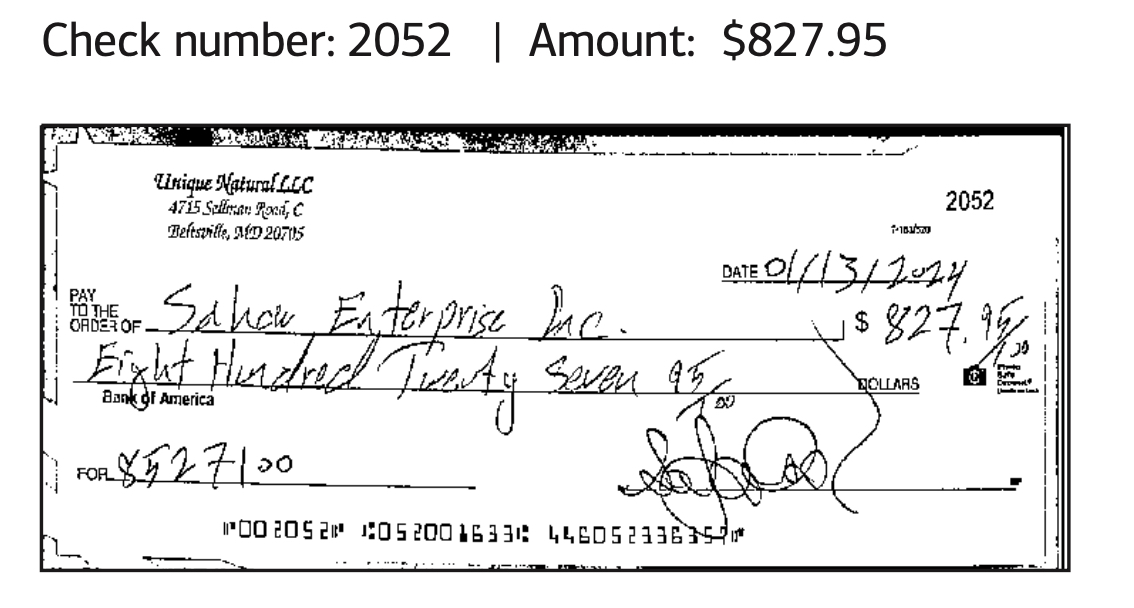 Check number: 2052 | Amount: $827.95
Unique Natural LLC
4715 Sellman Road, C
Beltsville, MD 20705
2052
DATE 01/13/2024
PAY TO THE ORDER OF Sahow Enterprise Inc. $ 827.95/100
Eight Hundred Twenty Seven 95/100 DOLLARS
Bank of America
FOR 8527100
⑈002052⑈ ⑆052001633⑆